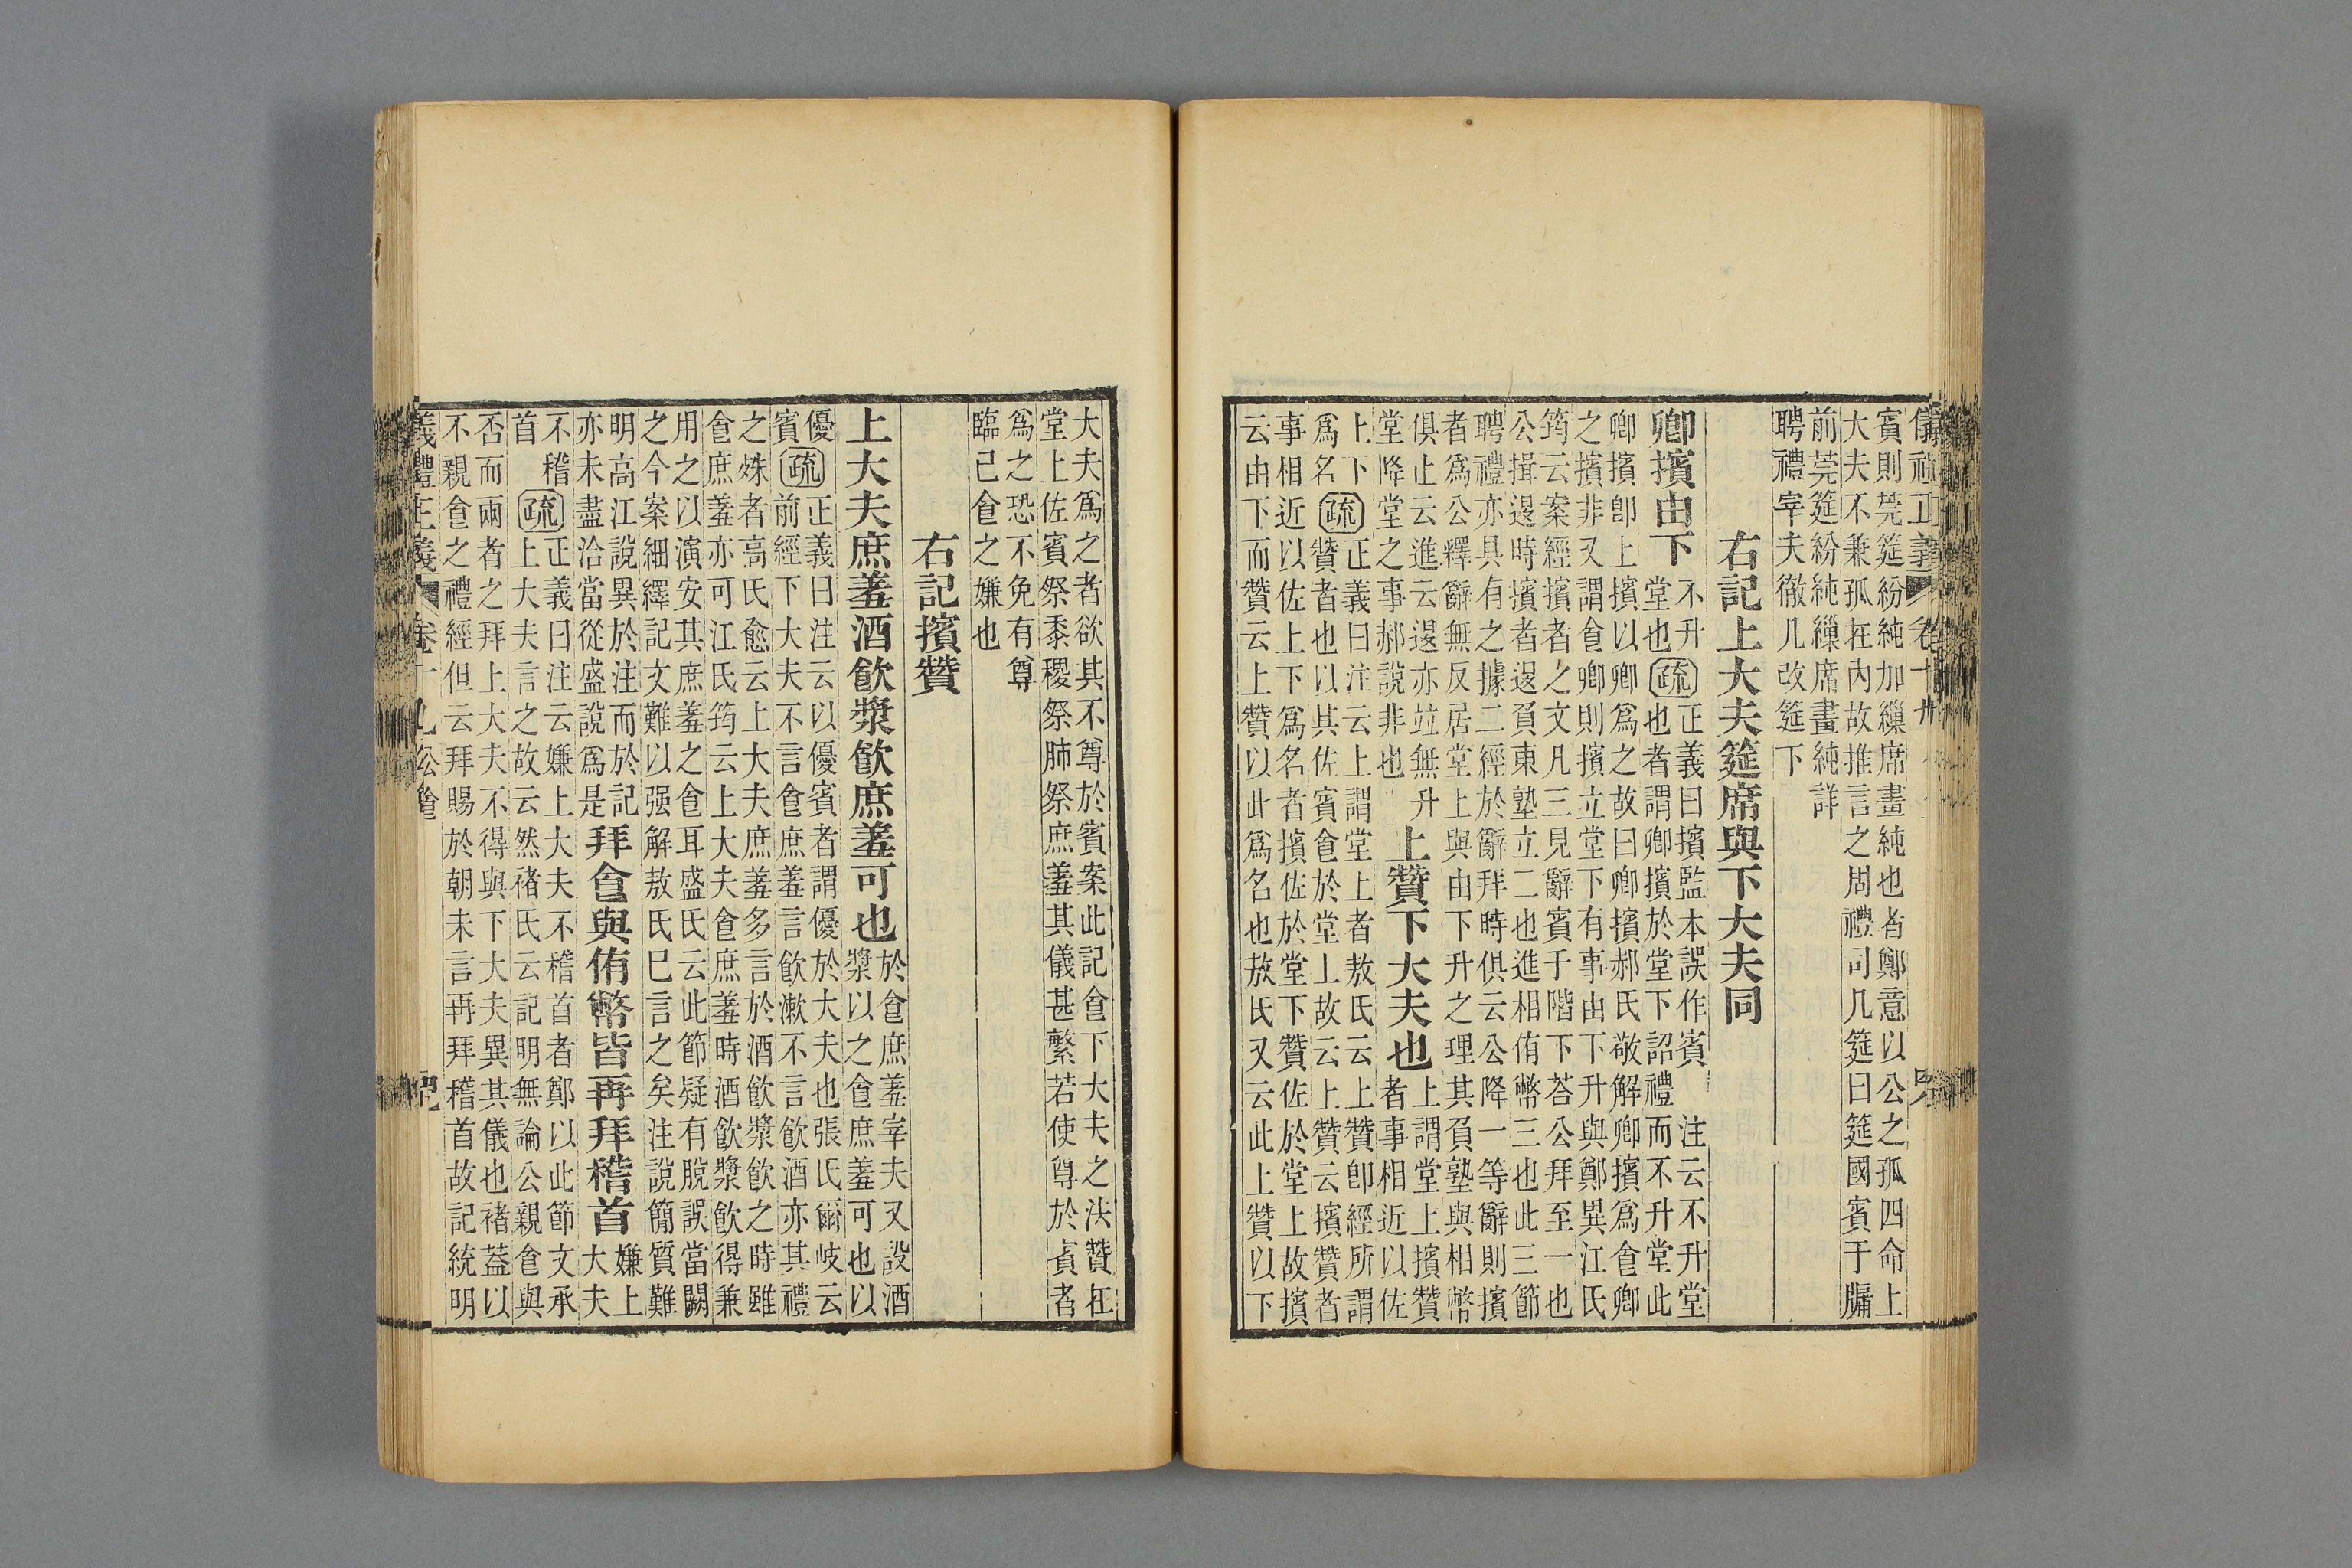 賓則莞筵紛純加繅席畫純也者鄭意以公之孤四命上
大夫不兼孤在內故推言之周禮司几筵曰筵國賓于牖
前莞筵紛純繅席畫純詳
聘禮宰夫徹几改筵下
右記上大夫筵席與下大夫同
卿擯由下
不升
堂也
疏
正義曰擯監本誤作賓 注云不升堂
也者謂卿擯於堂下詔禮而不升堂此
卿擯卽上擯以卿爲之故曰卿擯郝氏敬解卿擯爲食卿
之擯非又謂食卿則擯立堂下有事由下升與鄭異江氏
筠云案經擯者之文凡三見辭賓于階下荅公拜至一也
公揖退時擯者退負東塾立二也進相侑幣三也此三節
聘禮亦具有之據二經於辭拜時俱云公降一等辭則擯
者爲公釋辭無反居堂上與由下升之理其負塾與相幣
俱止云進云退亦竝無升
堂降堂之事郝說非也
上贊下大夫也
上謂堂上擯贊
者事相近以佐
上下
爲名
疏
正義曰注云上謂堂上者敖氏云上贊卽經所謂
贊者也以其佐賓食於堂上故云上贊云擯贊者
事相近以佐上下爲名者擯佐於堂下贊佐於堂上故擯
云由下而贊云上贊以此爲名也敖氏又云此上贊以下
大夫爲之者欲其不尊於賓案此記食下大夫之法贊在
堂上佐賓祭黍稷祭肺祭庶羞其儀甚繁若使尊於賓者
爲之恐不免有尊
臨己食之嫌也
右記擯贊
上大夫庶羞酒飮漿飮庶羞可也
於食庶羞宰夫又設酒
漿以之食庶羞可也以
優
賓
疏
正義曰注云以優賓者謂優於大夫也張氏爾岐云
前經下大夫不言食庶羞言飮漱不言飮酒亦其禮
之殊者高氏愈云上大夫庶羞多言於酒飮漿飮之時雖
食庶羞亦可江氏筠云上大夫食庶羞時酒飮漿飮得兼
用之以演安其庶羞之食耳盛氏云此節疑有脫誤當闕
之今案細繹記文難以强解敖氏已言之矣注說簡質難
明高江說異於注而於記
亦未盡洽當從盛說爲是
拜食與侑幣皆再拜稽首
嫌上
大夫
不稽
首
疏
正義曰注云嫌上大夫不稽首者鄭以此節文承
上大夫言之故云然褚氏云記明無論公親食與
否而兩者之拜上大夫不得與下大夫異其儀也褚蓋以
不親食之禮經但云拜賜於朝未言再拜稽首故記統明